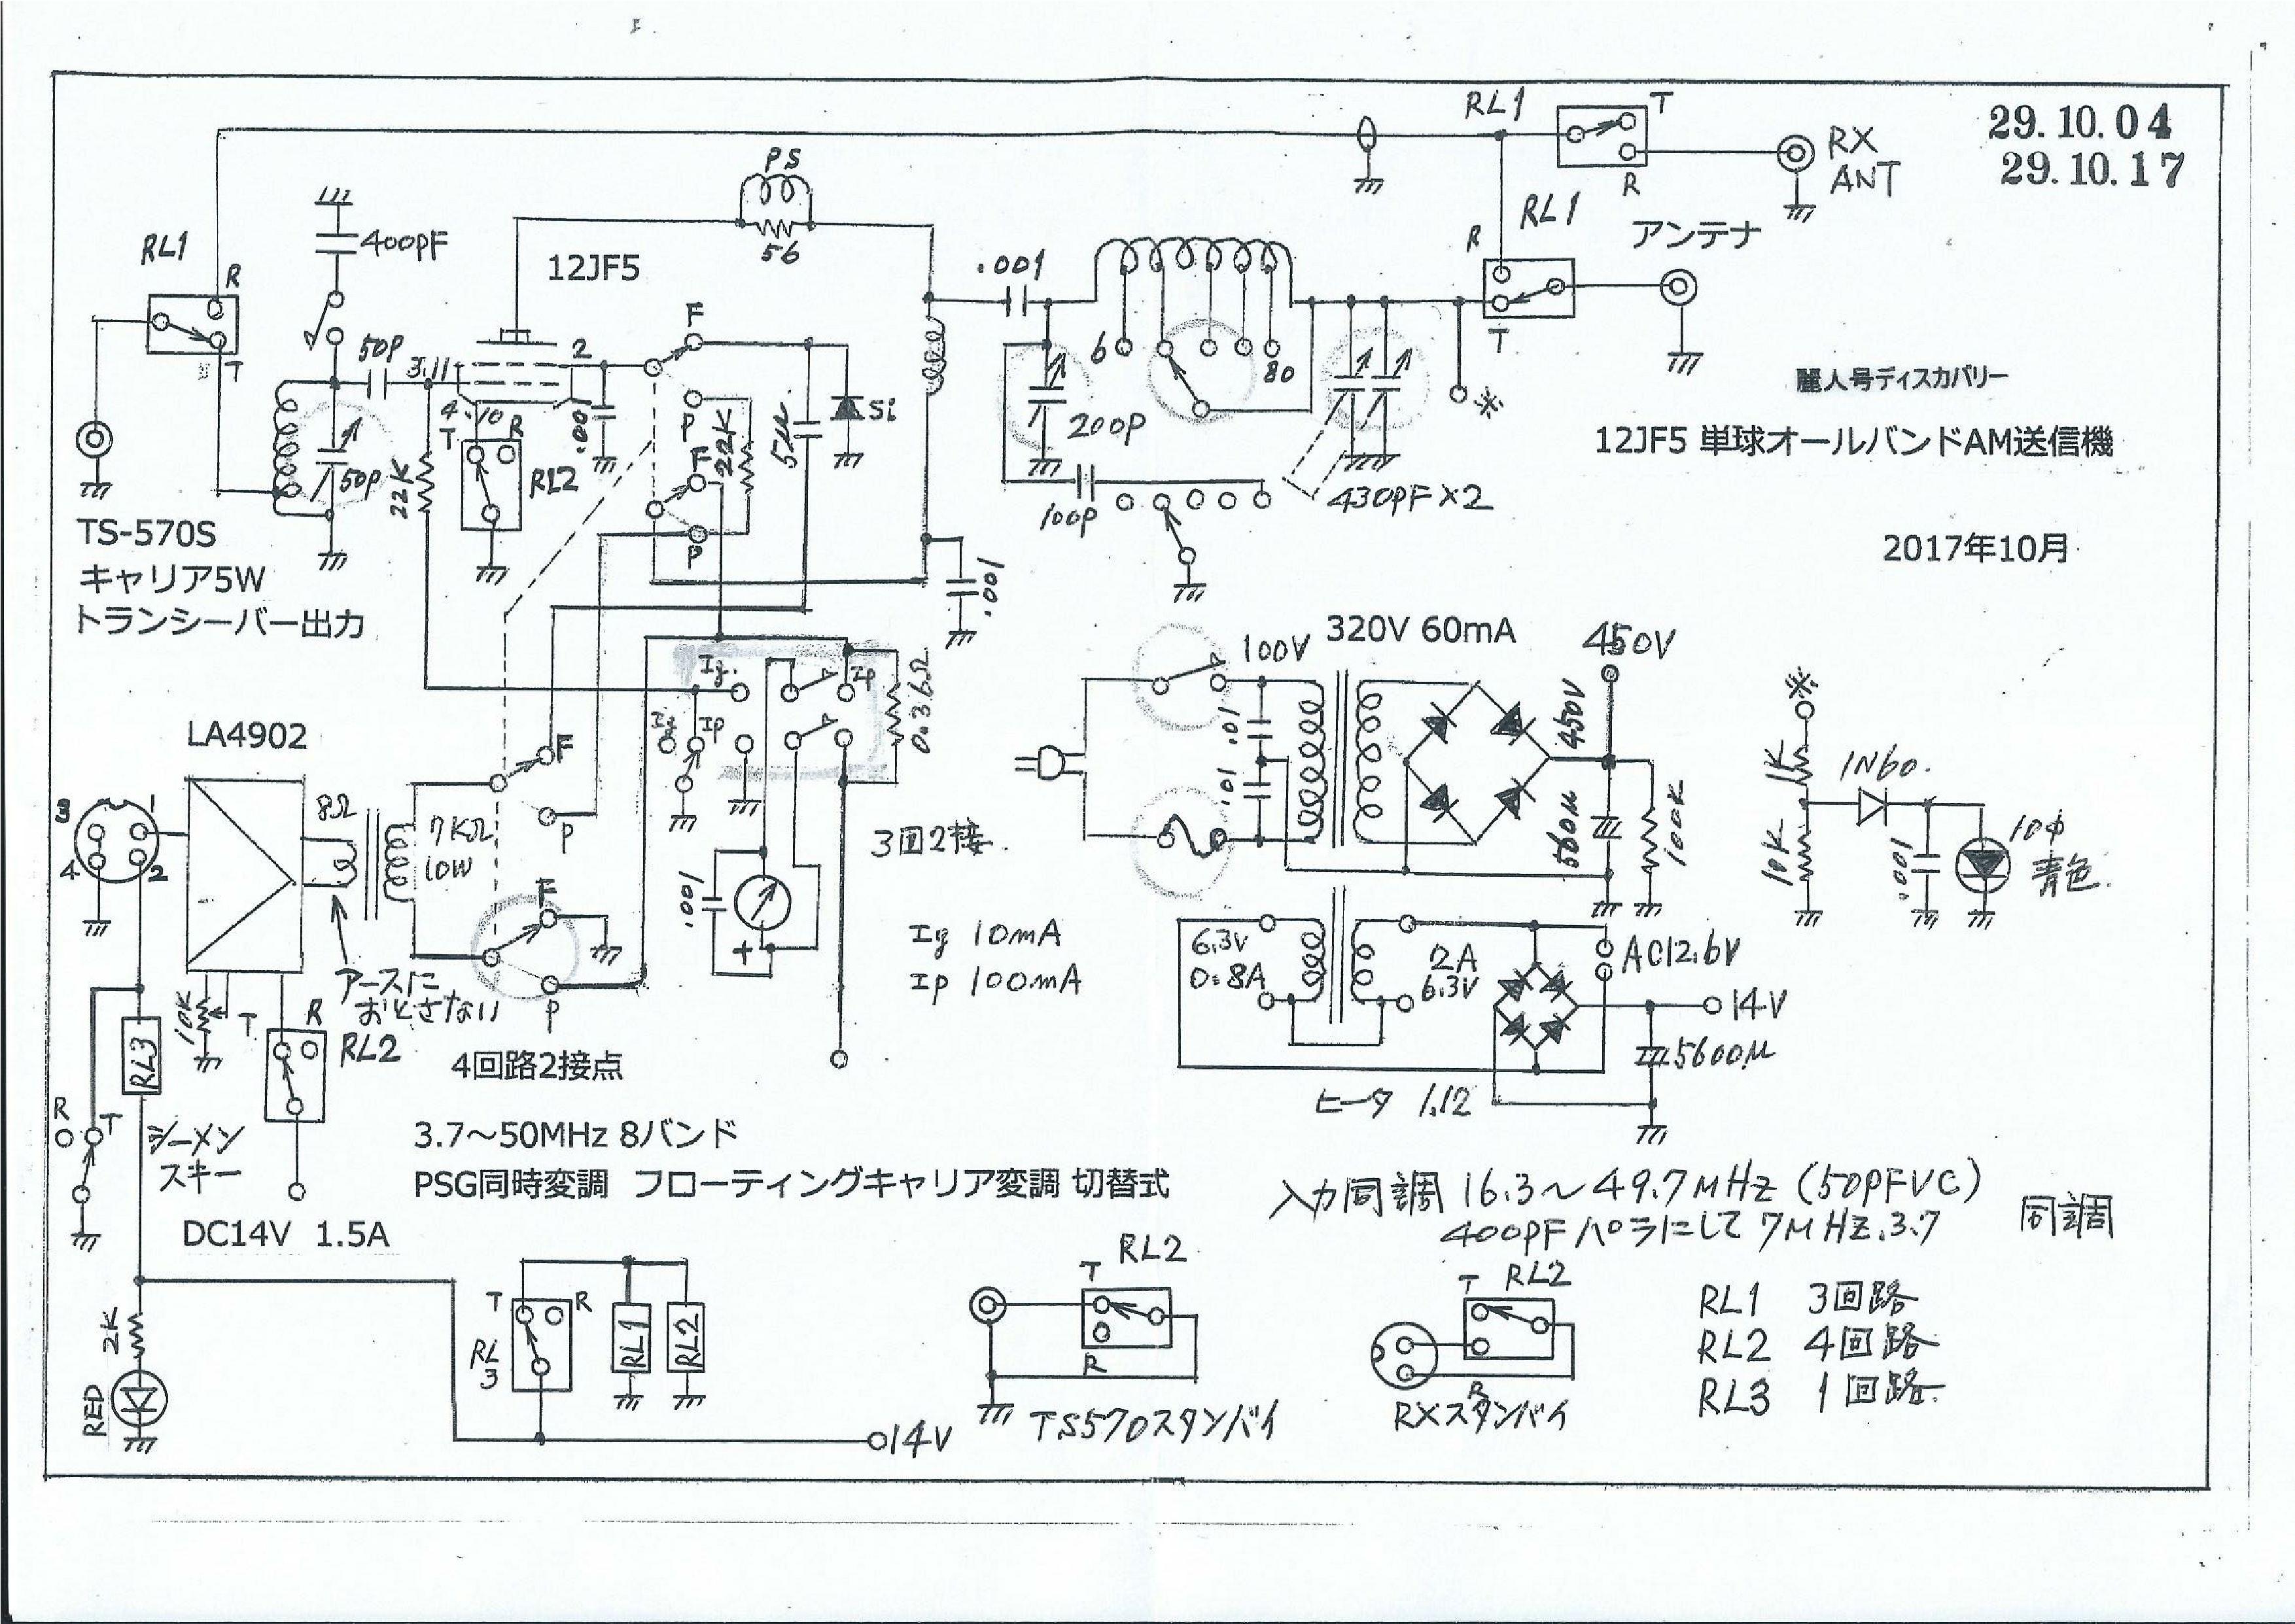 29.10.04
29.10.17
RL1
T
R
RX
ANT
RL1
R
T
アンテナ
PS
56
400PF
RL1
R
T
12JF5
50P
3.11
2
4.10
T
R
RL2
.001
22K
50P
F
P
F
P
22K
5μ
Si
.001
6
80
200P
100P
430PF×2
※
.001
麗人号ディスカバリー
12JF5 単球オールバンドAM送信機
2017年10月
TS-570S
キャリア5W
トランシーバー出力
Ig.
Ip
Ig
Ip
0.36Ω
100V
320V 60mA
450V
450V
.01
.01
560μ
100K
※
1K
10K
1N60.
.001
10φ
青色.
LA4902
3
1
4
2
8Ω
7KΩ
10W
F
P
F
P
3回2接.
.001
+
Ig 10mA
Ip 100mA
アースに
おとさない
4回路2接点
10K
T
R
RL2
RL3
R
T
シーメン
スキー
DC14V 1.5A
6.3V
0.8A
2A
6.3V
AC12.6V
14V
5600μ
ヒータ 1.12
3.7～50MHz 8バンド
PSG同時変調 フローティングキャリア変調 切替式
入力同調 16.3～49.7MHz (50PFVC)
400PFパラにして 7MHz.3.7
同調
2K
RED
T
R
RL
3
RL1
RL2
14V
RL2
T
R
TS570スタンバイ
T
RL2
R
RXスタンバイ
RL1 3回路
RL2 4回路
RL3 1回路